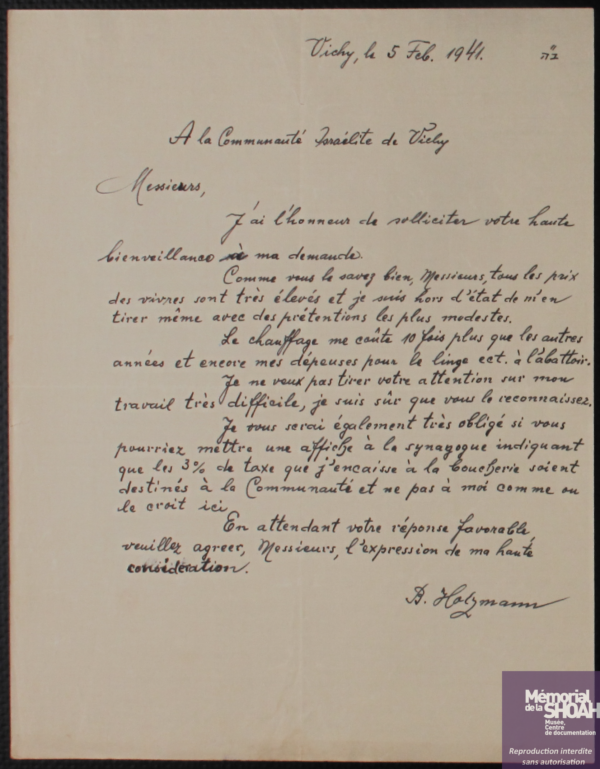 Vichy, le 5 Feb. 1941. ב"ה
A la Communauté Israélite de Vichy
Messieurs,
J'ai l'honneur de solliciter votre haute
bienveillance à ma demande.
Comme vous le savez bien, Messieurs, tous les prix
des vivres sont très élevés et je suis hors d'état de m'en
tirer même avec des prétentions les plus modestes.
Le chauffage me coûte 10 fois plus que les autres
années et encore mes dépenses pour le linge ect. à l'abattoir.
Je ne veux pas tirer votre attention sur mon
travail très difficile, je suis sûr que vous le reconnaissez.
Je vous serai également très obligé si vous
pourriez mettre une affiche à la synagogue indiquant
que les 3% de taxe que j'encaisse à la boucherie soient
destinés à la Communauté et ne pas à moi comme on
le croit ici
En attendant votre réponse favorable
veuillez agreer, Messieurs, l'expression de ma haute
considération.
B. Holzmann
Mémorial
de la SHOAH
Musée,
Centre
de documentation
Reproduction interdite
sans autorisation